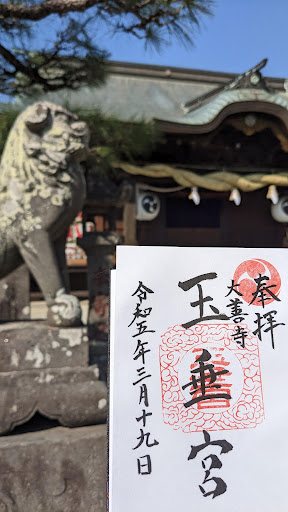 奉拝
大善寺
玉垂宮
令和五年三月十九日